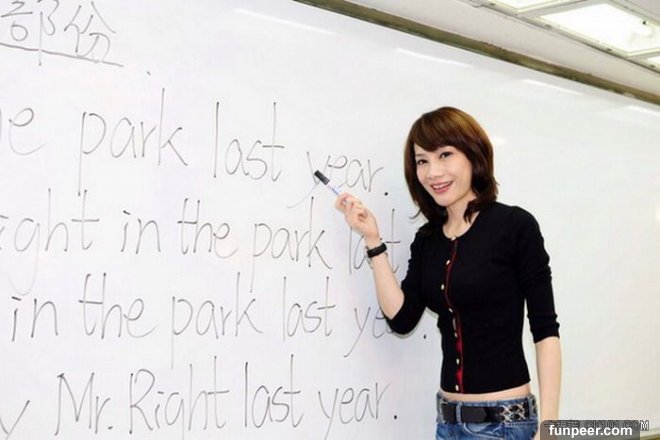 部份
e park last year.
ight in the park last
in the park last ye
y Mr. Right last year.
funpeer.com